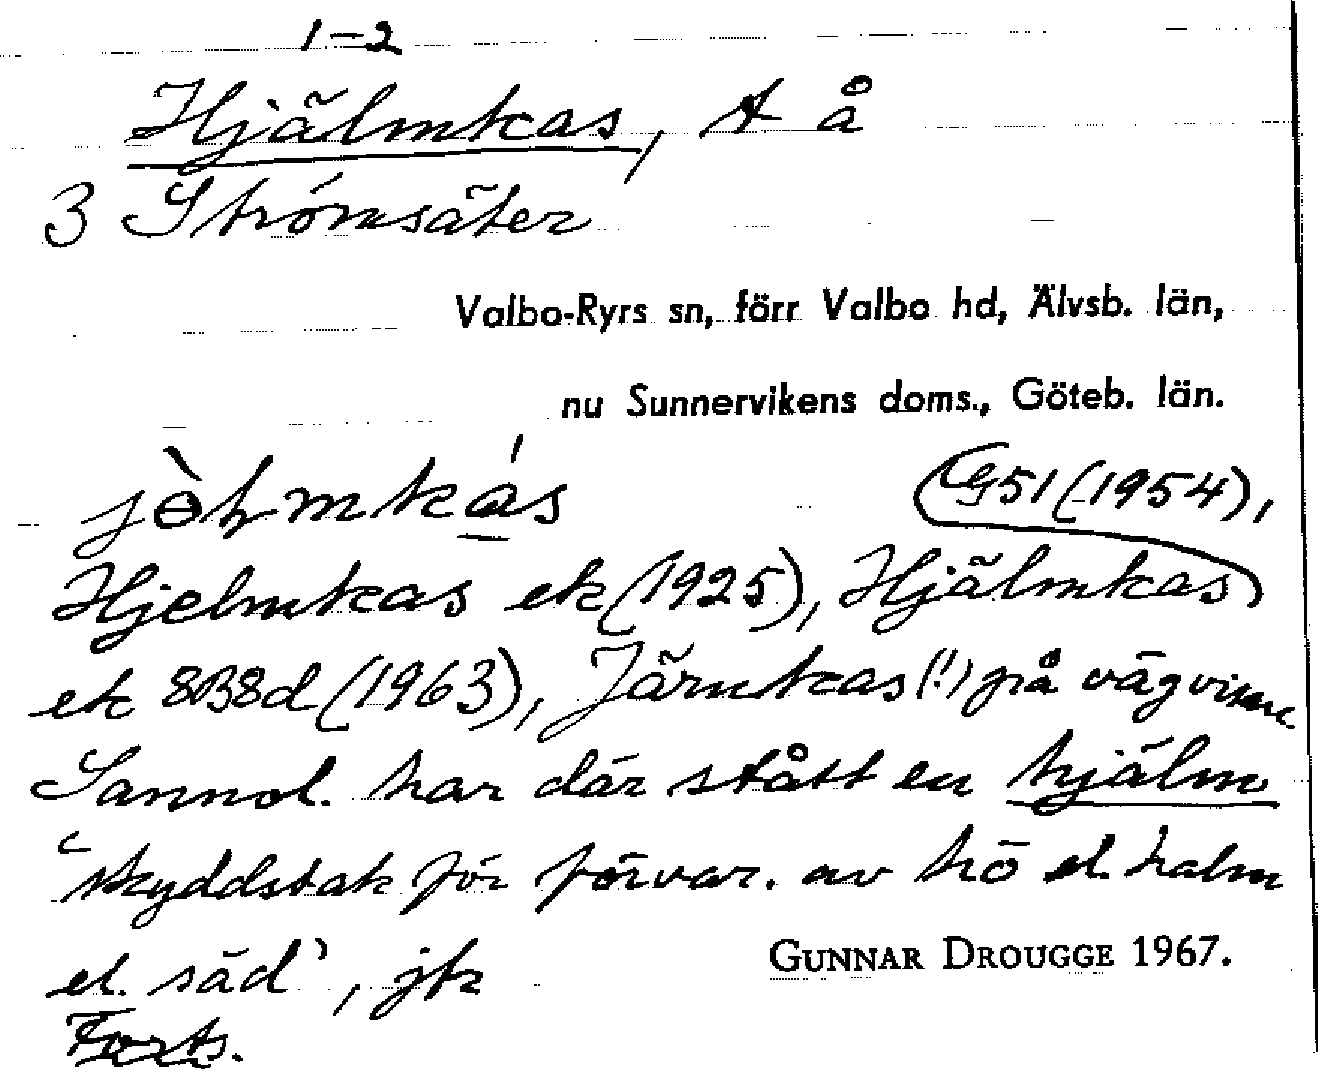 1–2
Hjälmkas, t å
3 Strömsäter
Valbo-Ryrs sn, förr Valbo hd, Älvsb. län,
nu Sunnervikens doms., Göteb. län.
G51 (1954),
Hjelmkas ek (1925), Hjälmkas
ek 8B8d (1963), Järnkas (!) på vägvisare
Sannol. har där stått en hjälm
'skyddstak för förvar. av hö el. halm
el. säd', jfr
GUNNAR DROUGGE 1967.
Forts.